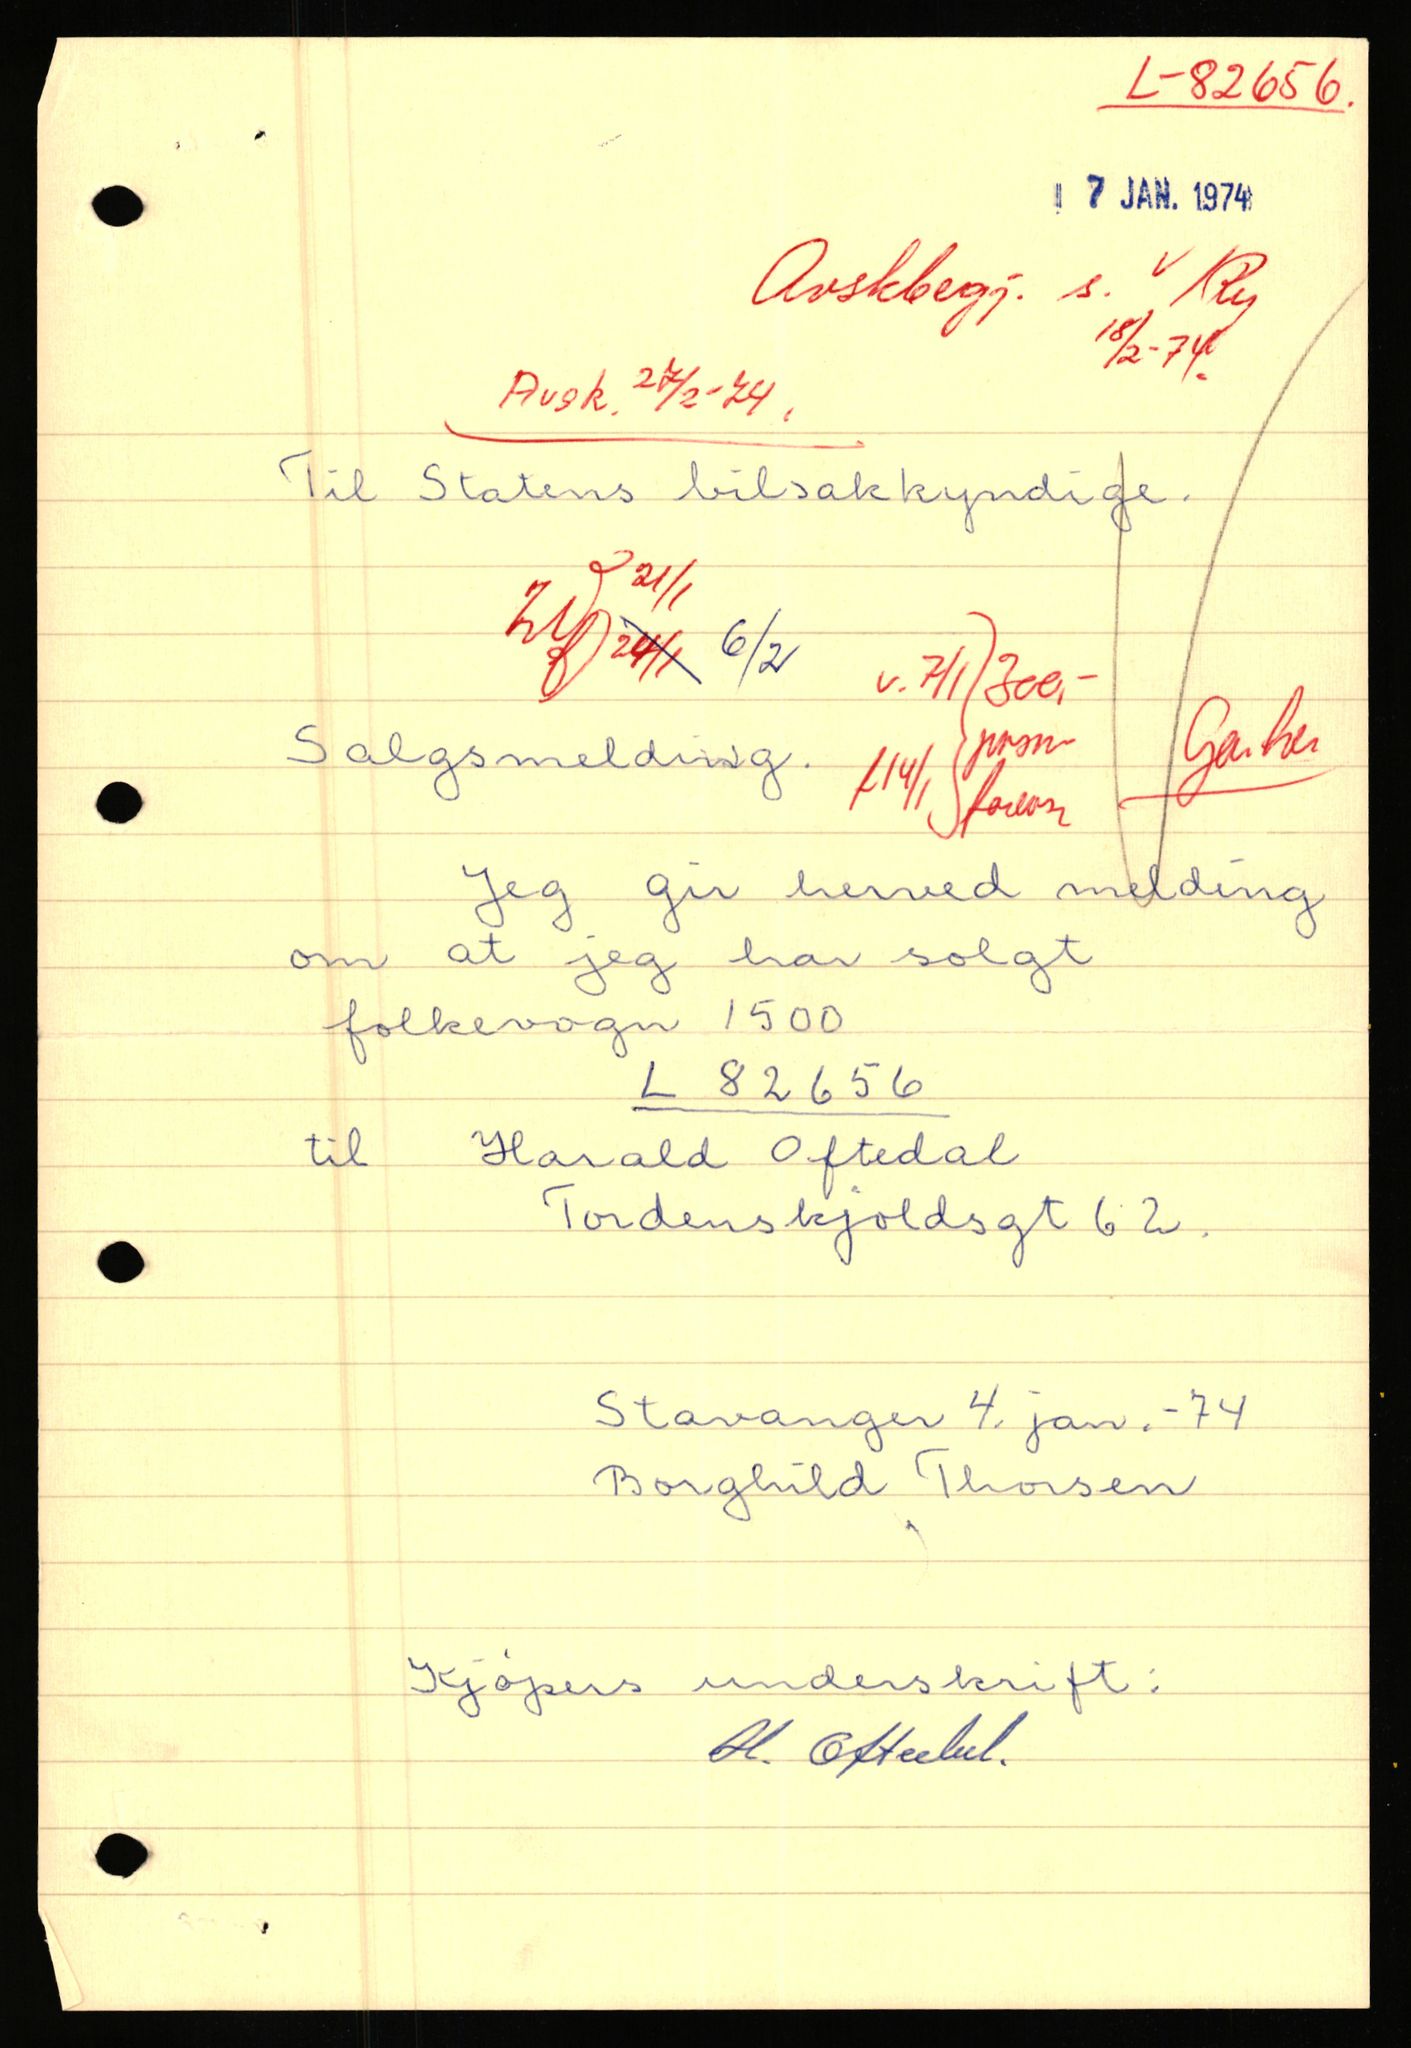 L-82656.
7 JAN. 1974
Avskbegj. s. v
18/2-74.
Avsk. 27/2-74.
Til Statens bilsakkyndige.
21/1
24/1 6/2
v. 7/1
14/1
Salgsmelding.
Jeg gir herved melding
om at jeg har solgt
folkevogn 1500
L 82656
til Harald Oftedal
Tordenskjoldsgt 62.
Stavanger 4. jan. -74
Borghild Thorsen
Kjöpers underskrift:
H. Oftedal.